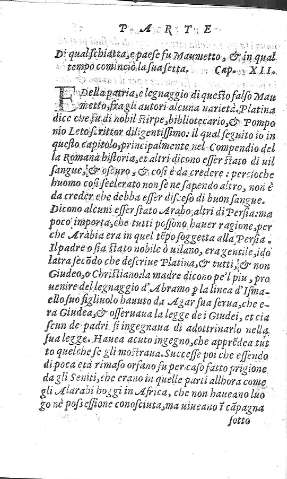 PARTE
Di qual schiatta, e paese fu Maumetto, & in qual
tempo cominciò la sua setta. Cap. XII.
E Della patria, e legnaggio di questo falso Mau
metto, fra gli autori alcuna varietà. Platina
dice che fu di nobil stirpe, bibliotecario, & Pompo
nio Leto scrittor diligentissimo. il qual seguito io in
questo capitolo, principalmente nel Compendio del
la Romana historia, et altri dicono esser stato di uil
sangue, & oscuro, & così è da credere: percioche
huomo così scelerato non se ne sapendo altro, non è
da creder che debba esser disceso di buon sangue.
Dicono alcuni esser stato Arabo, altri di Persia: ma
poco importa, che tutti possono hauer ragione, per
che Arabia era in quel tẽpo soggetta alla Persia.
Il padre o sia stato nobile o uilano, era gentile, ido
latra secõdo che descriue Platina, & tutti, & non
Giudeo, o Christiano. la madre dicono pe'l piu, pro
uenire del legnaggio d'Abramo p la linea d'Isma-
ello suo figliuolo hauuto da Agar sua serua, che e-
ra Giudea, & osseruaua la legge dei Giudei, et cia
scun de padri si ingegnaua di adottrinarlo nella
sua legge. Hauea acuto ingegno, che apprẽdea tut
to quel che se gli mostraua. Successe poi che essendo
di poca età rimaso orfano fu per caso fatto prigione
da gli Seniti, che erano in quelle parti allhora come
gli Alarabi hoggi in Africa, che non haueano luo
go nè possessione conosciuta, ma uiueano ĩ cãpagna
sotto